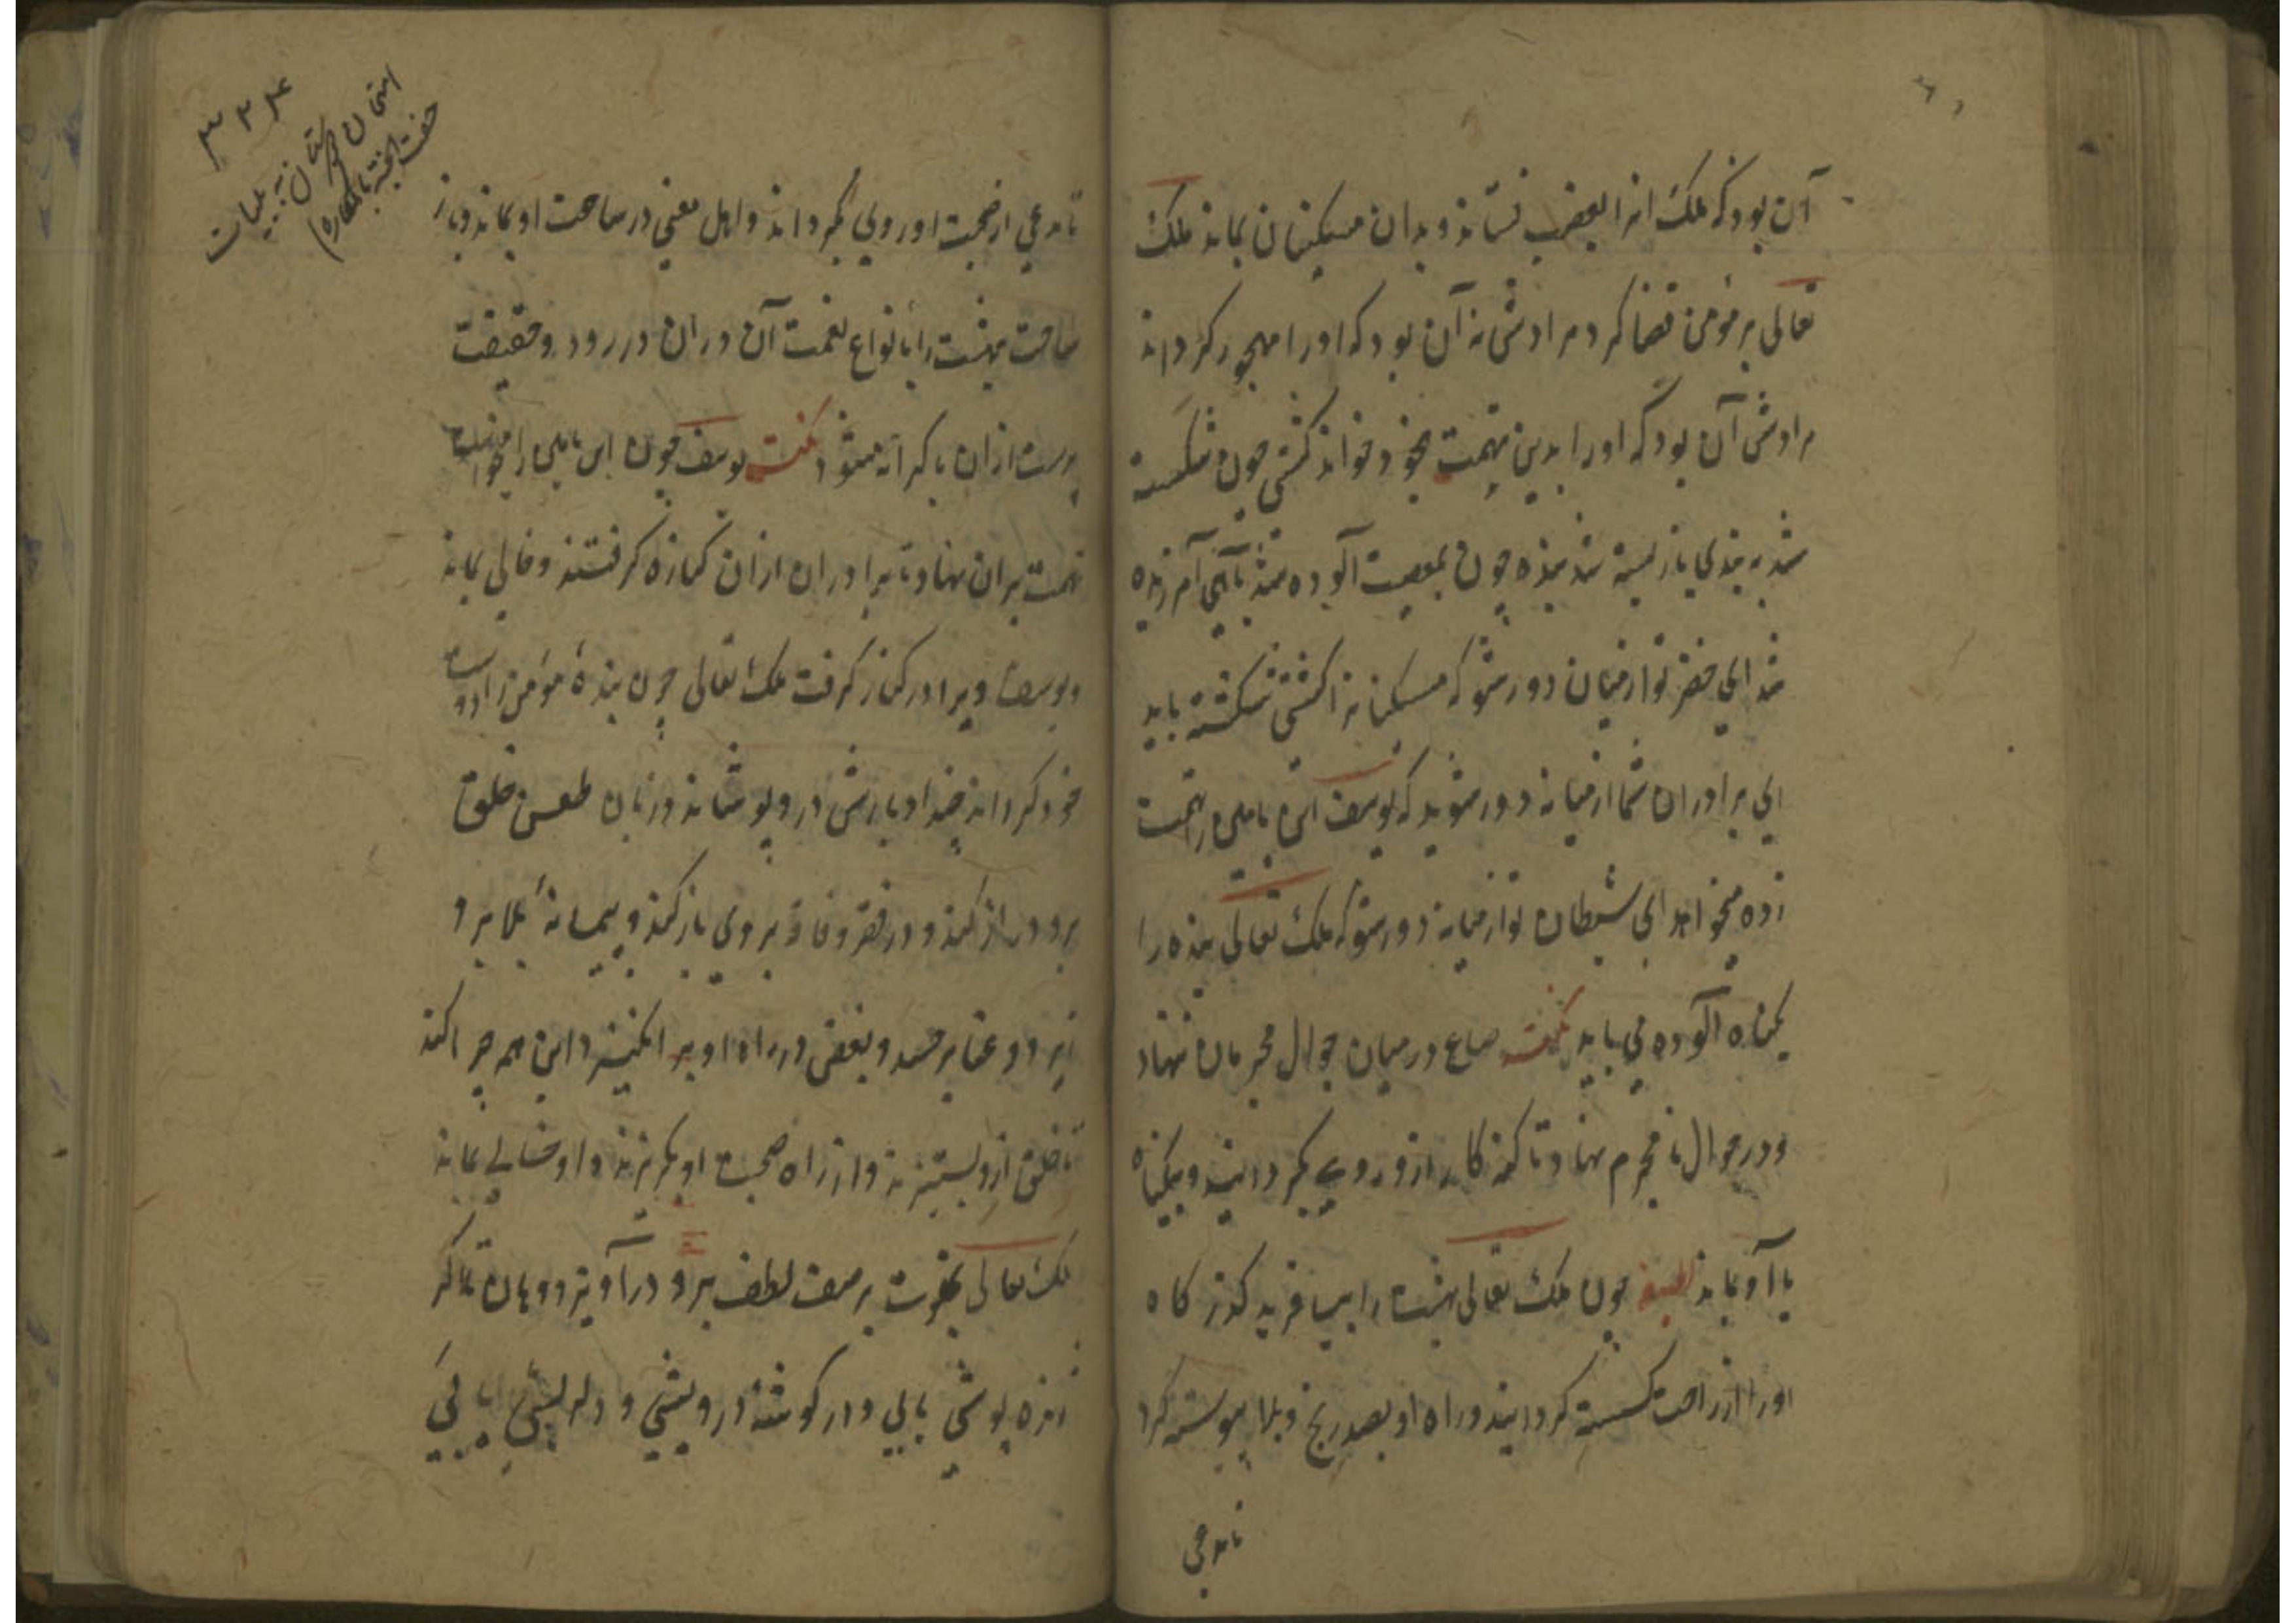 آن بود که ملک انرا بغصب نستاند و بدان مسکینان بماند ملک
تعالی بر مؤمن قضا کرد مرادش نه آن بود که او را مهجور کرداند
مرادش آن بود که او را بدین تهمت بخود خواند کشتی چون شکسته
شد به بندی باز بسته شد بنده چون بمعصیت آلوده شد بآهی آمرزیده
شد ای خضر تو از میان دور شو که مسکینانرا کشتی شکسته باید
ای برادران شما از میانه دور شوید که یوسف ابن یامین را تهمت
زده میخواهد ای شیطان تو از میانه دور شو که ملک تعالی بنده را
بکناه آلوده می باید نکته صاع در میان جوال مجرمان ننهاد
و در جوال نامجرم نهاد تا کنه کار ازو روی بکرداند و بیکناه
با او بماند لطیفه چون ملک تعالی بهشت را بیافرید کذر کاه
او را از راحت کسسته کردانید و راه او بصد رنج و بلا پیوسته کرد
تا مدعی
۳۳۴
امتحان دوستان به بلیات
حفت الجنة بالمکاره)
تا مدعی از صحبت او روی بکرداند و اهل معنی در ساحت او بماند و باز
ساحت بهشت را با انواع نعمت آن دران در رود و حقیقت
پرست ازان با کرانه میشود نکته یوسف چون ابن یامین را میخواست
تهمت بران نهاد تا برادران ازان کناره کرفتند و خالی بماند
و یوسف ویرا در کنار کرفت ملک تعالی چون بنده مؤمن را دوست
خود کرداند جند ادبارش در وپوشاند و زبان طعن خلق
برو دراز کند و در فقر و فاقه بروی باز کند و پیمانه بلا برو
ریزد و عنا بر حسد و بغض در راه او بر انکیزد و این همه چرا کند
تا خلق ازو بستیزند و از راه صحبت او بکریزند و او خالی بماند
ملک تعالی بعزت بر صف لطف برو درآویزد و هان تا کر
ژنده پوشی یابی و در کوشه درویشی و دلریشی یابی